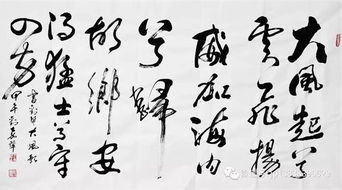 大風起兮
雲飛揚
威加海内
兮歸
故鄉安
得猛士兮守
四方
書劉邦大風歌
甲午